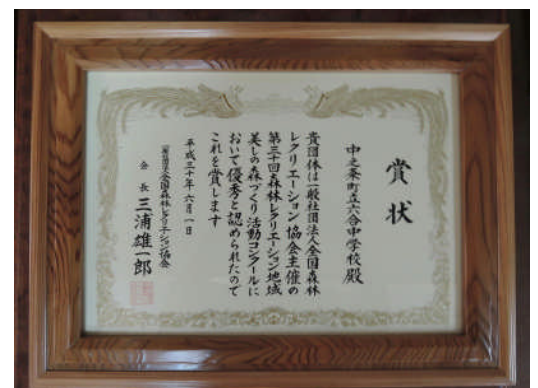 賞状
中之条町立六合中学校殿
貴団体は一般社団法人全国森林
レクリエーション協会主催の
第三十回森林レクリエーション地域
美しの森づくり活動コンクールに
おいて優秀と認められたので
これを賞します
平成三十年六月一日
一般社団法人全国森林レクリエーション協会
会長 三浦雄一郎